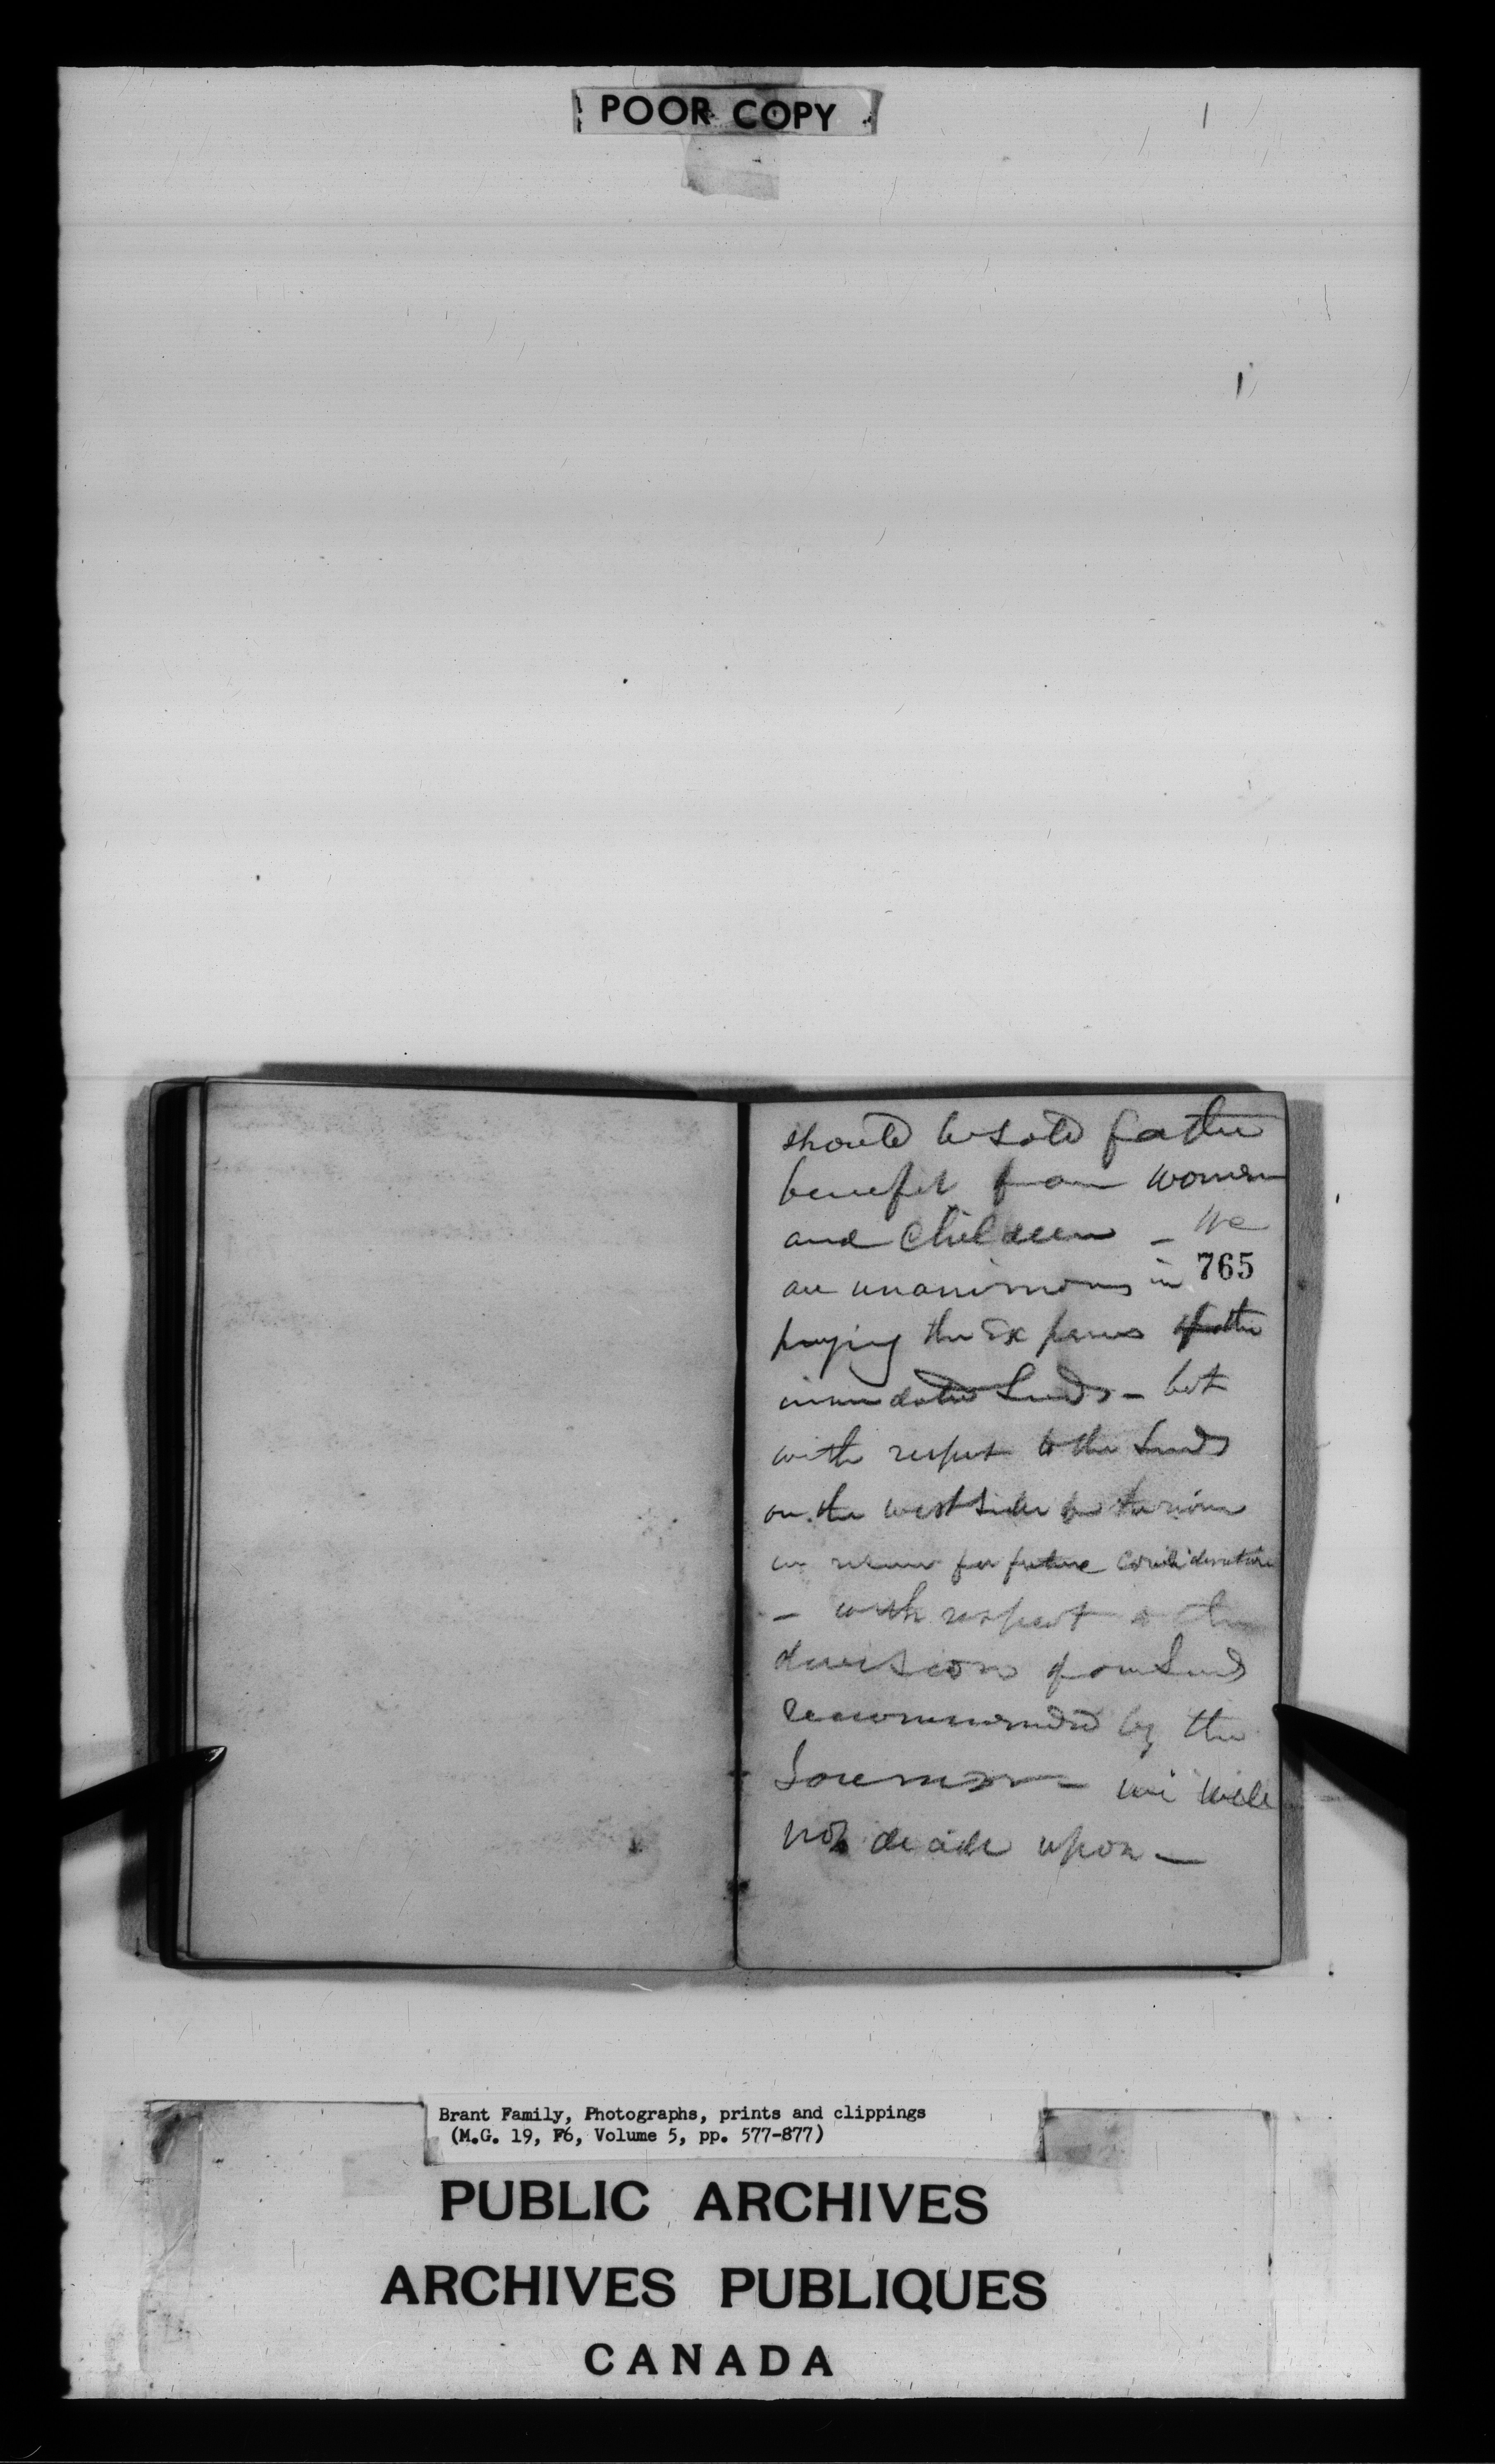 POOR COPY
should be sold for the
benefit of our women
and children – We
are unanimous in
765
paying the Expenses of the
inundated Lands – but
with respect to the Lands
on the west side the river
we reserve for future consideration
– with respect to the
division of our Land
recommended by the
Governor – we will
not decide upon –
Brant Family, Photographs, prints and clippings
(M.G. 19, F6, Volume 5, pp. 577-877)
PUBLIC ARCHIVES
ARCHIVES PUBLIQUES
CANADA